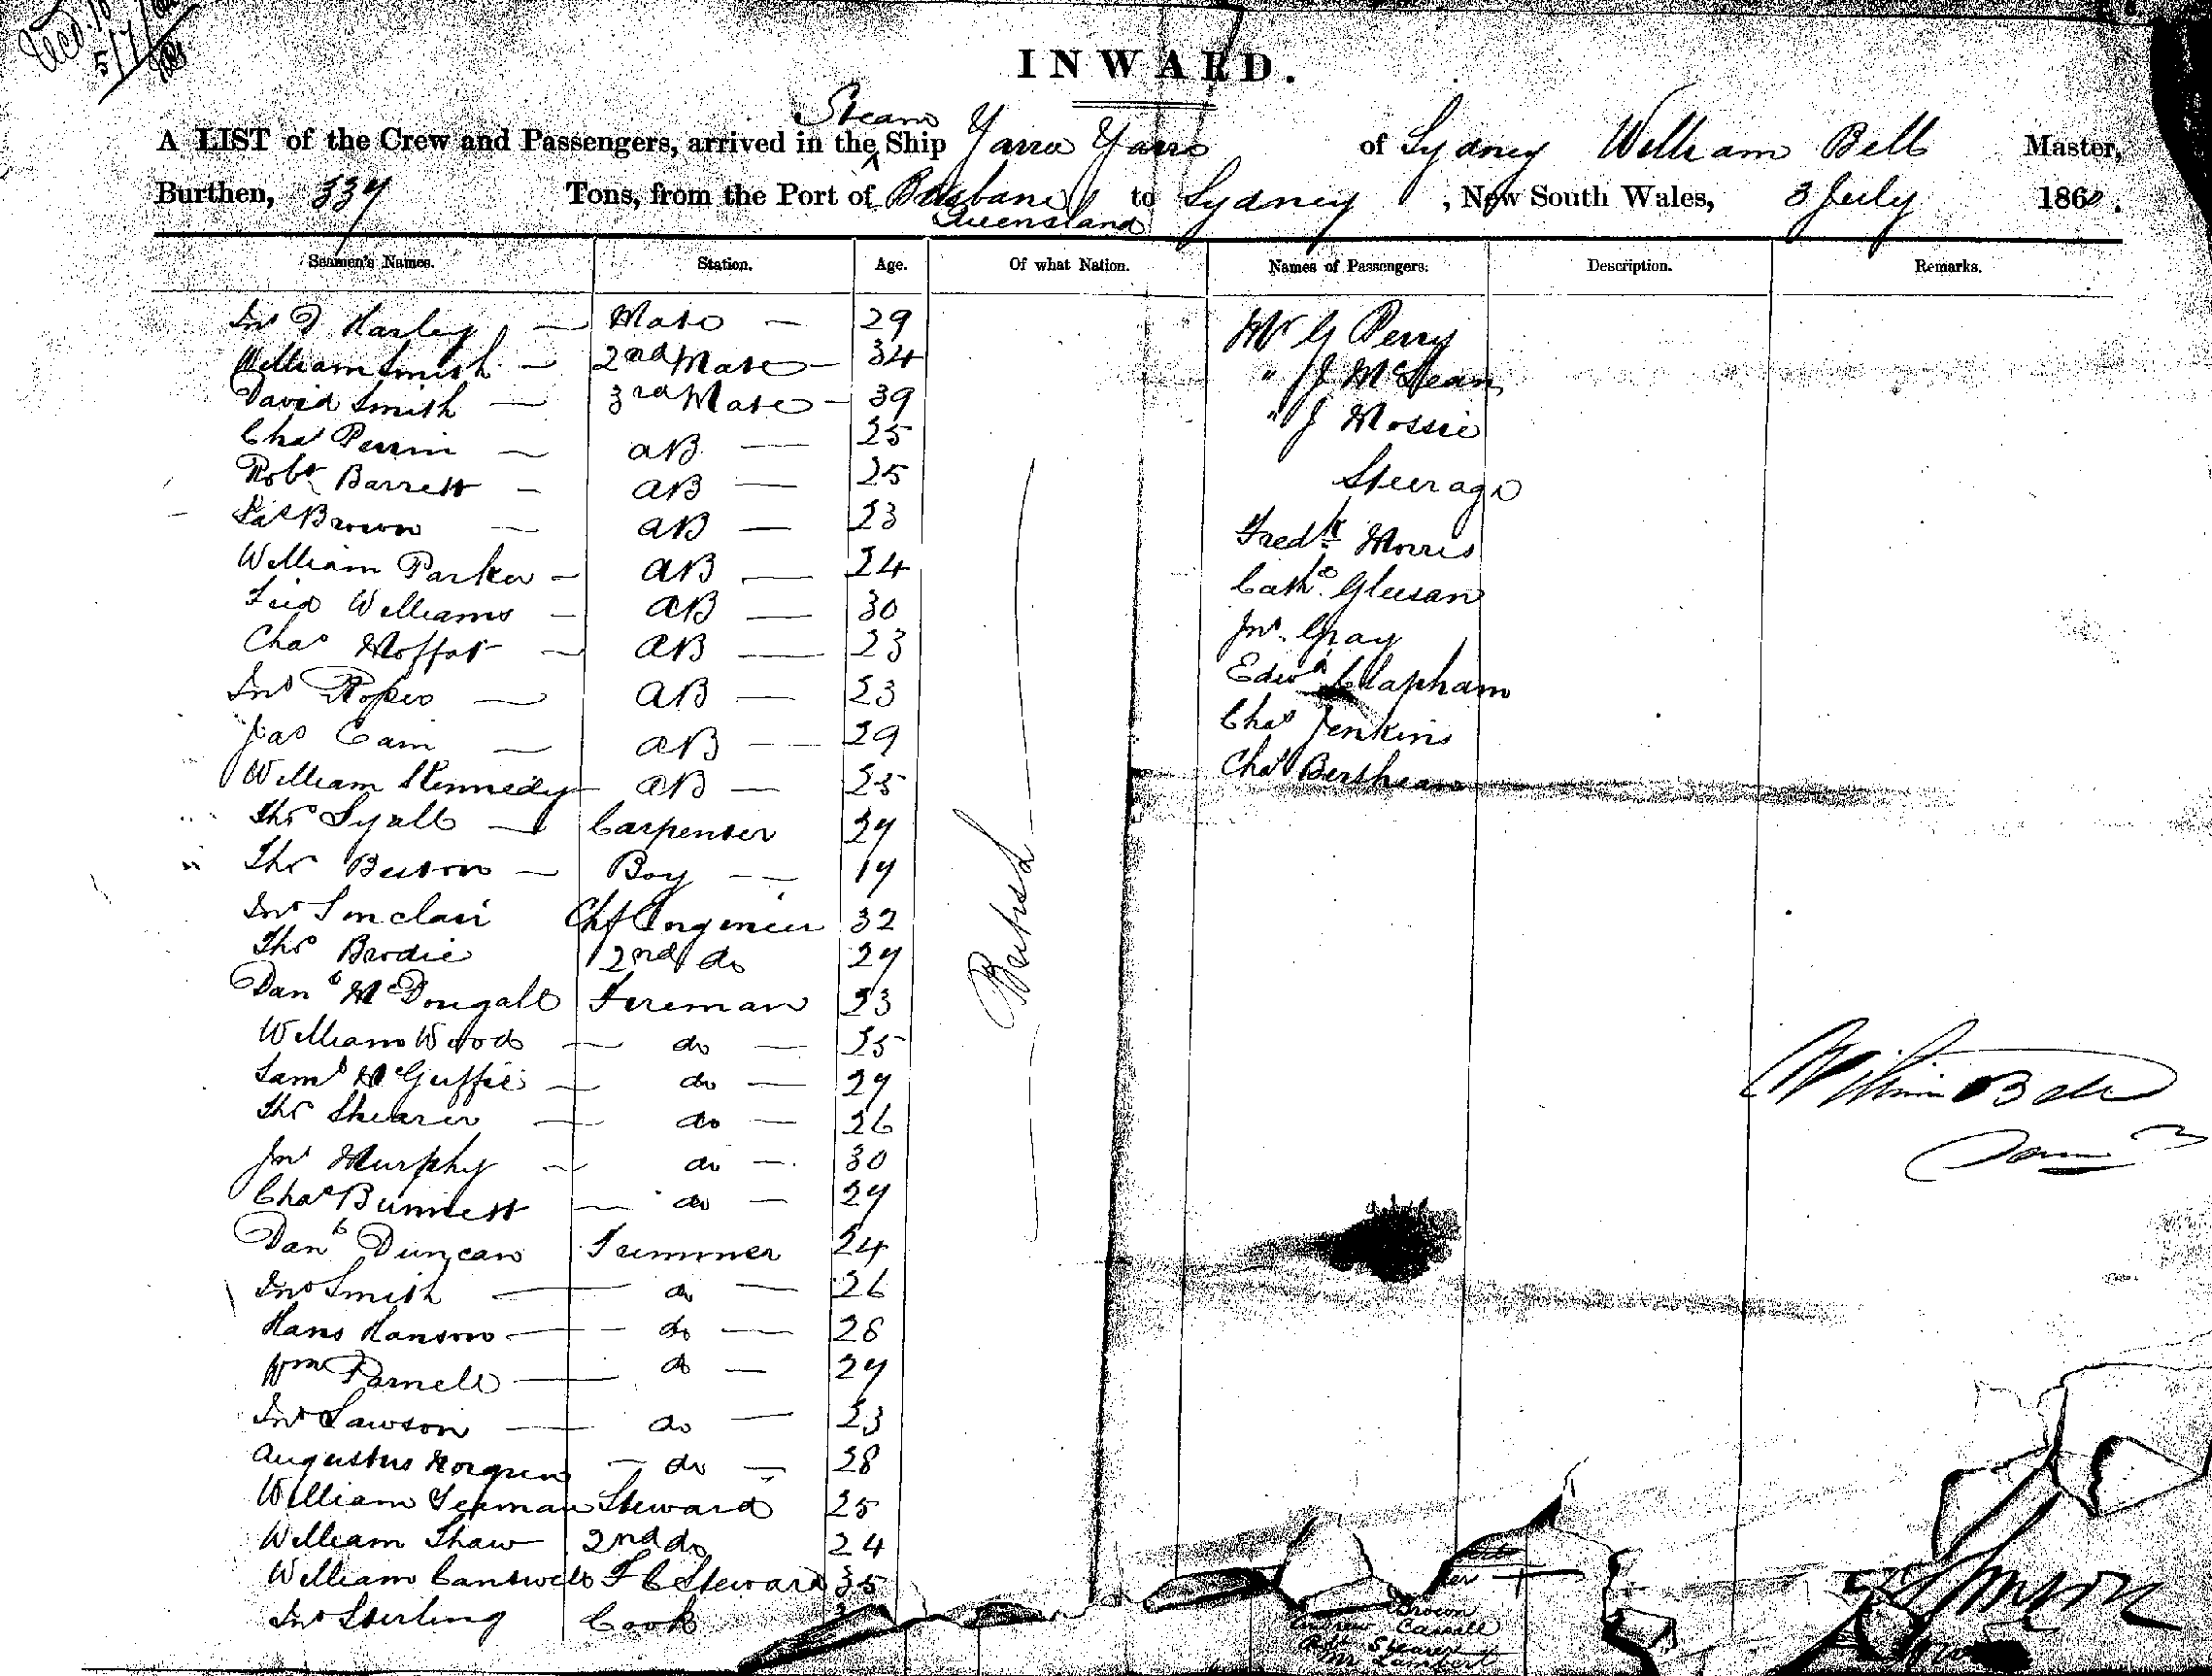 INWARD.
Steam
A LIST of the Crew and Passengers, arrived in the ^ Ship Yarra Yarra of Sydney William Bell Master,
Burthen, 337 Tons, from the Port of Brisbane to Sydney, New South Wales, 3 July 1860.
Queensland
Seamen's Names. Station. Age. Of what Nation. Names of Passengers. Description. Remarks.
Jno D Harley — Mate — 29
William Smith — 2nd Mate — 34
David Smith — 3rd Mate — 39
Chas Perrin — AB — 25
Robt Barrett — AB — 25
Brown — AB — 23
William Parker — AB — 24
Fred Williams — AB — 30
Chas Moffat — AB — 23
Jno Roper — AB — 23
Jas Cain — AB — 29
William Kennedy — AB — 25
Thos Lyall — Carpenter 27
Thos Beeton — Boy — 17
Jno Sinclair Chf Engineer 32
Thos Brodie 2nd do 27
Danl McDougall Fireman 23
William Wood — do — 25
Saml McGuffie — do — 27
Thos Shearer — do — 26
Jno Murphy — do — 30
Chas Burnett — do — 27
Danl Duncan Trimmer 24
Jno Smith — do — 26
Hans Hanson — do — 28
Wm Parnell — do — 27
Jno Lawson — do — 23
Augustus — do — 28
William Yeaman Steward 25
William Shaw 2nd do 24
William Cantwell F C Steward 35
Jno Sterling Cook
British
Mr G Perry
" J McLean
" J Mossie
Steerage
Fredk Morris
Cathe Gleesan
Jno. Gray
Edwd Clapham
Chas Jenkins
Chas
William Bell
Brown
Andrew Cassell
Robt Shearer
Mr Lambert